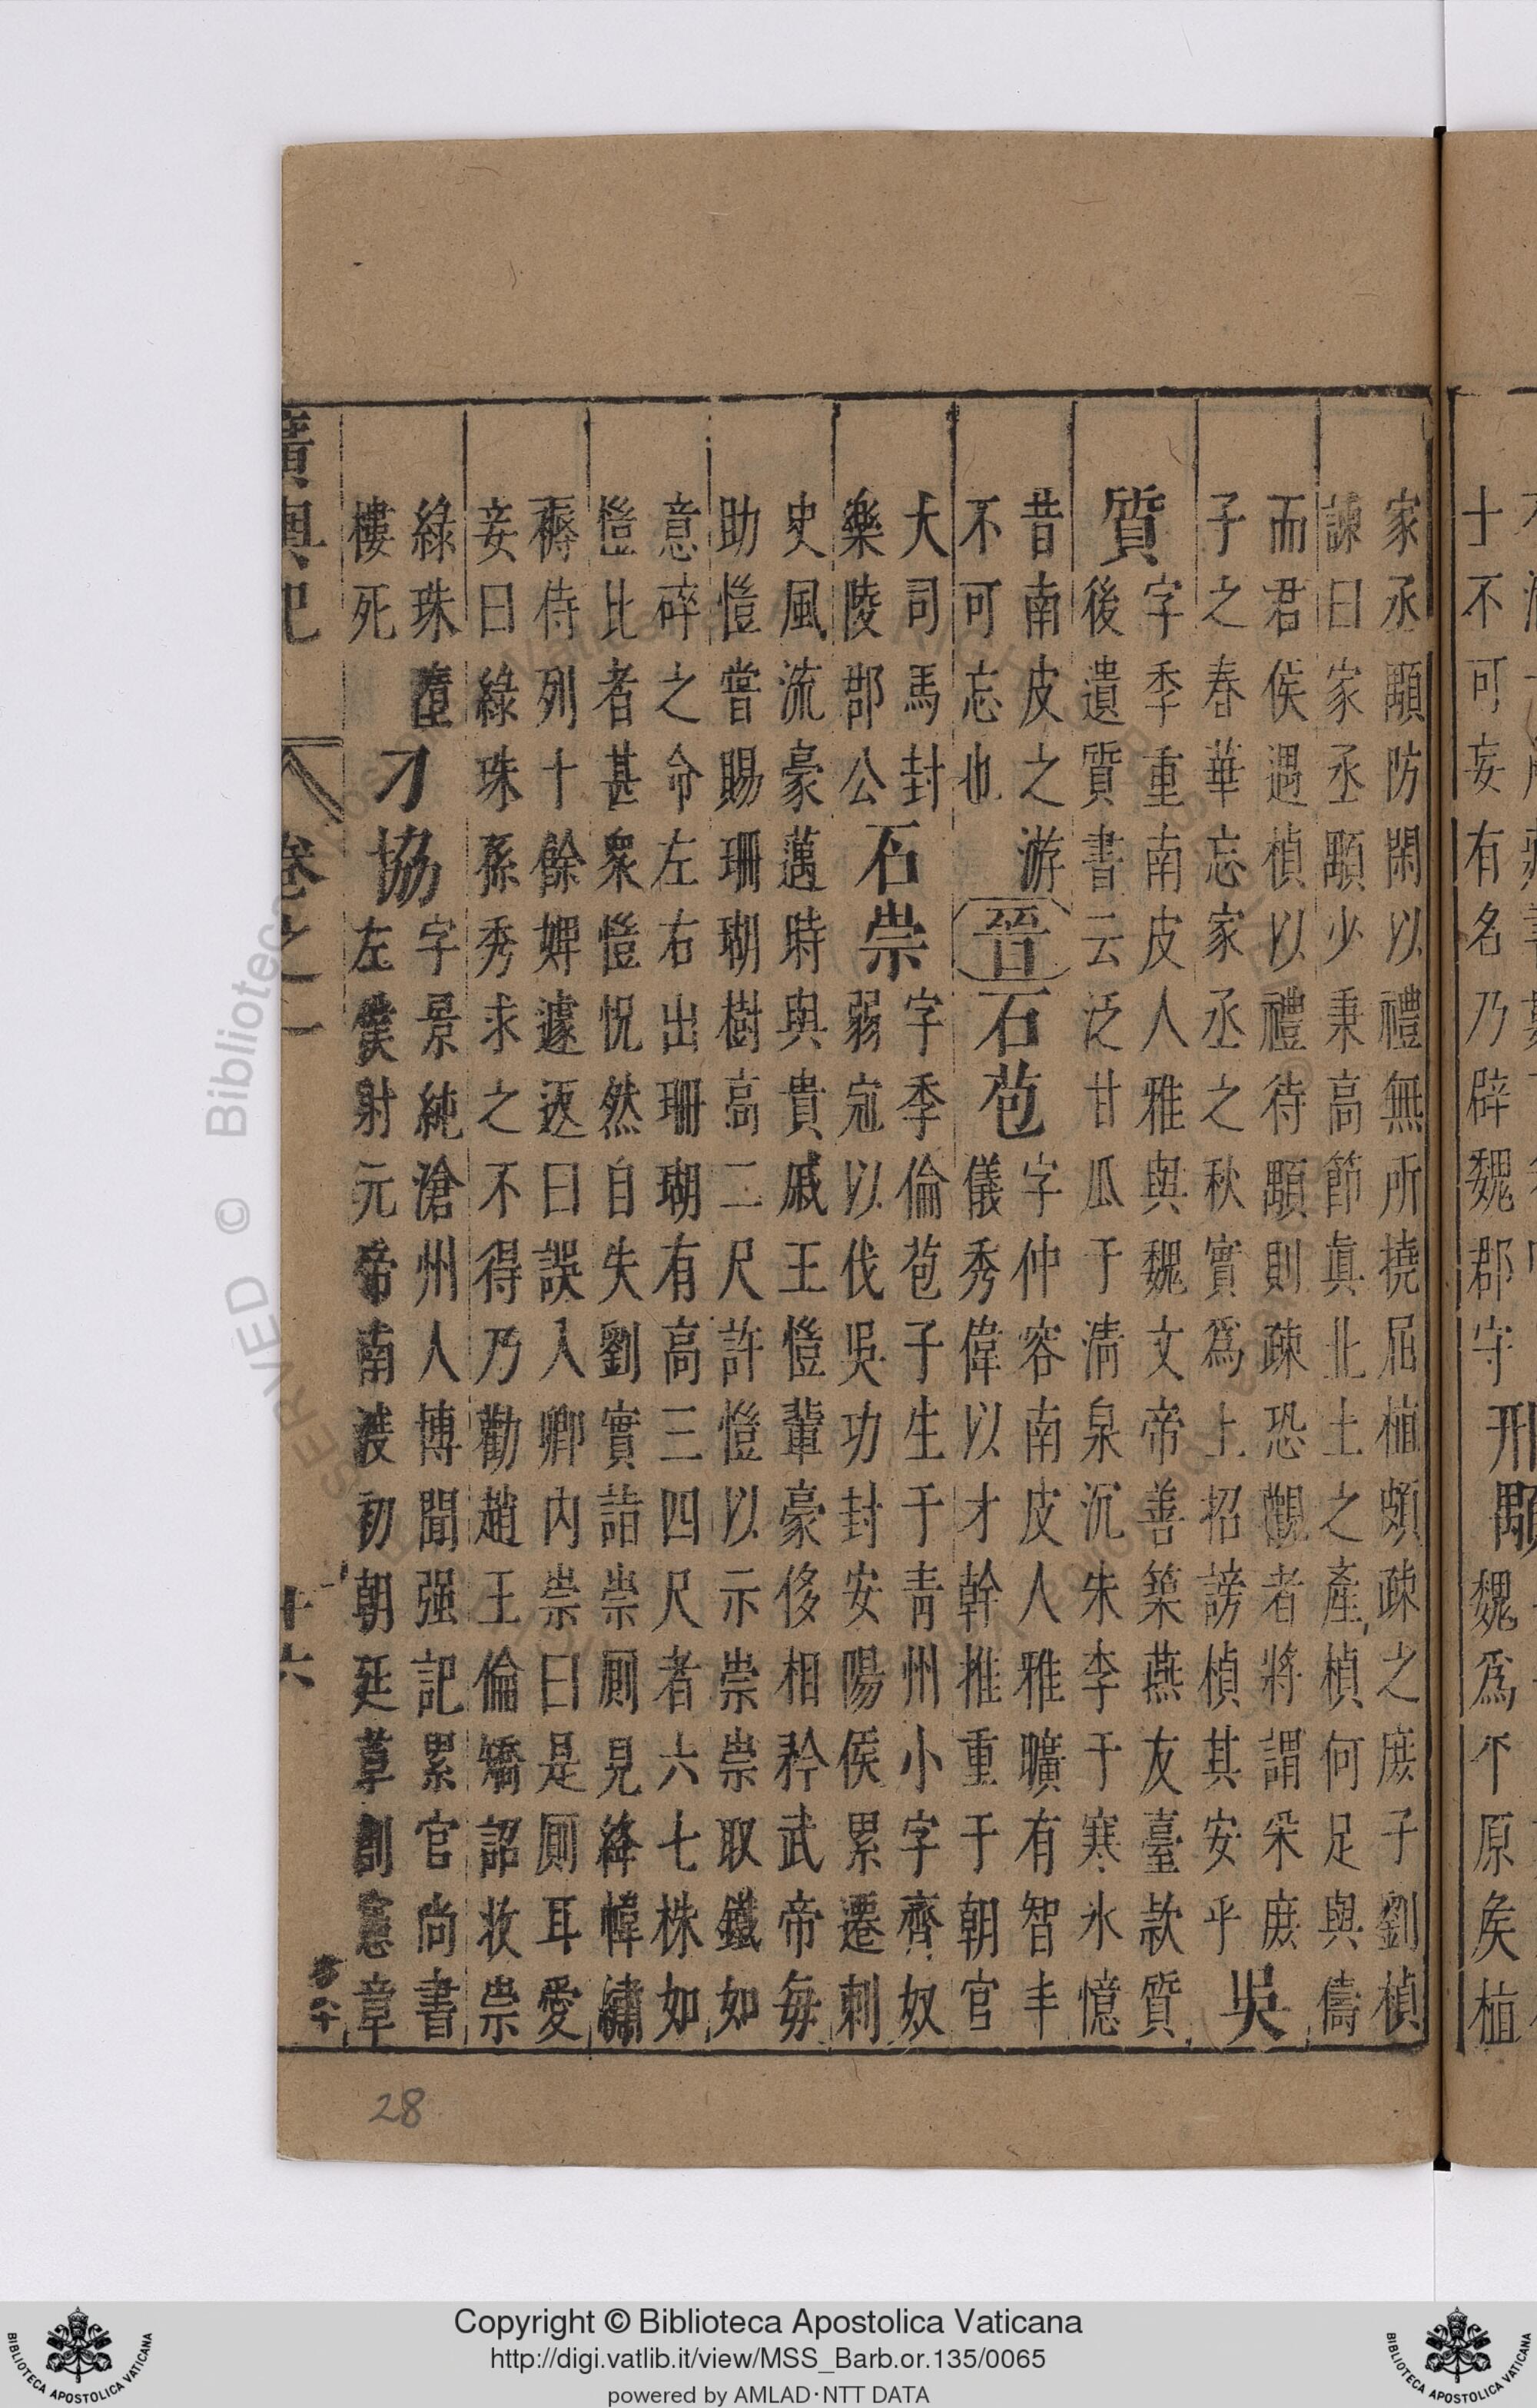 士不可妄有名乃辟魏郡守
魏爲平原矦植
家丞顒防閑以禮無所撓屈植頗疎之庶子劉楨
諫曰家丞顒少秉高節眞北土之產楨何足與儔
而君侯遇楨以禮待顒則疎恐觀者將謂采庶
子之春華忘家丞之秋實爲上招謗楨其安乎
吳
質
字季重南皮人雅與魏文帝善築燕友臺款質
後遺質書云泛甘瓜于淸泉沉朱李于寒氷憶
昔南皮之游
不可忘也
晉
石苞
字仲容南皮人雅曠有智丰
儀秀偉以才幹推重于朝官
大司馬封
樂陵郡公
石崇
字季倫苞子生于青州小字齊奴
弱冦以伐吳功封安陽侯累遷刺
史風流豪邁時與貴戚王愷輩豪侈相矜武帝每
助愷嘗賜珊瑚樹高二尺許愷以示崇崇取鐵如
意碎之命左右出珊瑚有高三四尺者六七株如
愷比者甚衆愷怳然自失劉實詣崇厠見絳幃繡
褥侍列十餘婢遽返曰誤入卿內崇曰是厠耳愛
妾曰綠珠孫秀求之不得乃勸趙王倫矯詔收崇
綠珠墮
樓死
刁協
字景純滄州人博聞强記累官尚書
左僕射元帝南渡初朝廷草創憲章
廣輿記 卷之一
28
Copyright © Biblioteca Apostolica Vaticana
http://digi.vatlib.it/view/MSS_Barb.or.135/0065
powered by AMLAD·NTT DATA
BIBLIOTECA APOSTOLICA VATICANA
BIBLIOTECA APOSTOLICA VATICANA